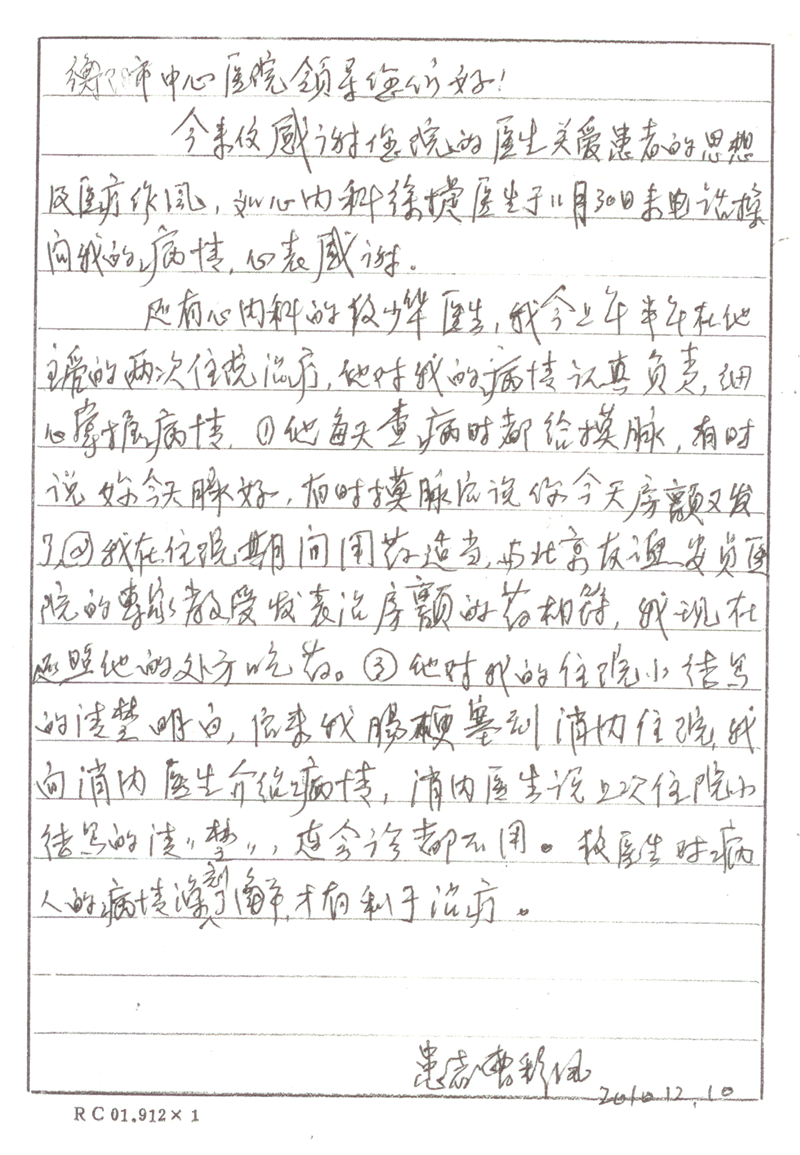 衡阳市中心医院领导您们好!
今来仅感谢您院的医生关爱患者的思想
及医疗作风，如心内科徐 医生于11月30日来电话探
问我的病情，心表感谢。
还有心内科的 少华医生，我今上年半年在他
主爱的两次住院治疗，他对我的病情认真负责，细
心 病情，①他每天查病时都给摸脉，有时
说你今天脉好，有时摸脉后说你今天房颤又发
了，②我在住院期间用药适当，与北京友谊安贞医
院的专家教授发表治房颤的药相符，我现在
还照他的处方吃药。③他对我的住院小结写
的清楚明白，后来我肠梗塞到消内住院，我
向消内医生介绍病情，消内医生说上次住院小
结写的清"楚"，连会诊都不用。 医生对病
人的病情深刻了解，才有利于治疗。
患者 曹彩凤
2010.12.10
RC01.912×1